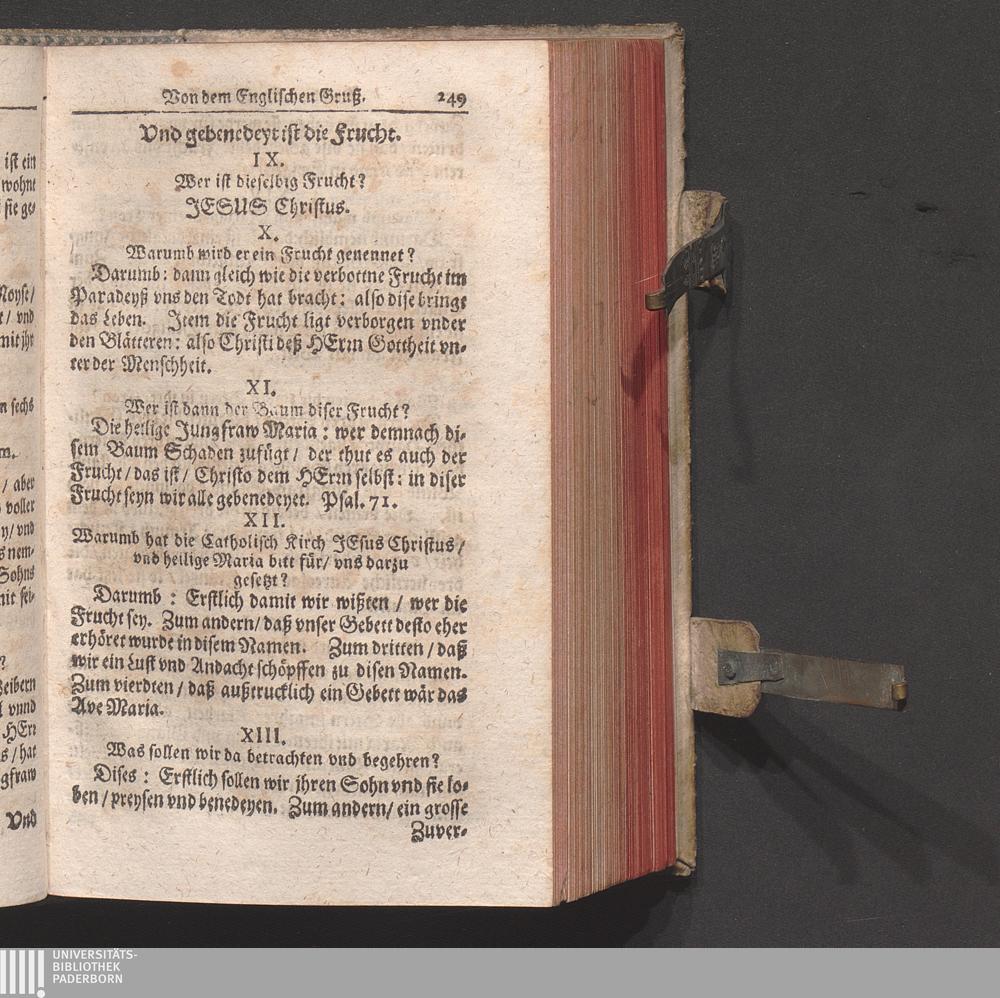 ist ein
wohnt
sie ge-
Moyse/
t/ vnd
mit jhr
n sechs
m.
/ aber
voller
y/ vnd
s nem-
Sohns
mit sei-
?
Weibern
l vnnd
HErr
s/ hat
gfraw
Vnd
Von dem Englischen Gruß. 249
Vnd gebenedeyt ist die Frucht.
IX.
Wer ist dieselbig Frucht?
JESUS Christus.
X.
Warumb wird er ein Frucht genennet?
Darumb: dann gleich wie die verbottne Frucht im
Paradeyß vns den Todt hat bracht: also dise bringt
das Leben. Jtem die Frucht ligt verborgen vnder
den Blätteren: also Christi deß HErrn Gottheit vn-
ter der Menschheit.
XI.
Wer ist dann der Baum diser Frucht?
Die heilige Jungfraw Maria: wer demnach di-
sem Baum Schaden zufügt/ der thut es auch der
Frucht/ das ist/ Christo dem HErrn selbst: in diser
Frucht seyn wir alle gebenedeyet. Psal. 71.
XII.
Warumb hat die Catholisch Kirch JEsus Christus/
vnd heilige Maria bitt für/ vns darzu
gesetzt?
Darumb: Erstlich damit wir wißten/ wer die
Frucht sey. Zum andern/ daß vnser Gebett desto eher
erhöret wurde in disem Namen. Zum dritten/ daß
wir ein Lust vnd Andacht schöpffen zu disen Namen.
Zum vierdten/ daß außtrucklich ein Gebett wär das
Ave Maria.
XIII.
Was sollen wir da betrachten vnd begehren?
Dises: Erstlich sollen wir jhren Sohn vnd sie lo-
ben/ preysen vnd benedeyen. Zum andern/ ein grosse
Zuver-
UNIVERSITÄTS-
BIBLIOTHEK
PADERBORN